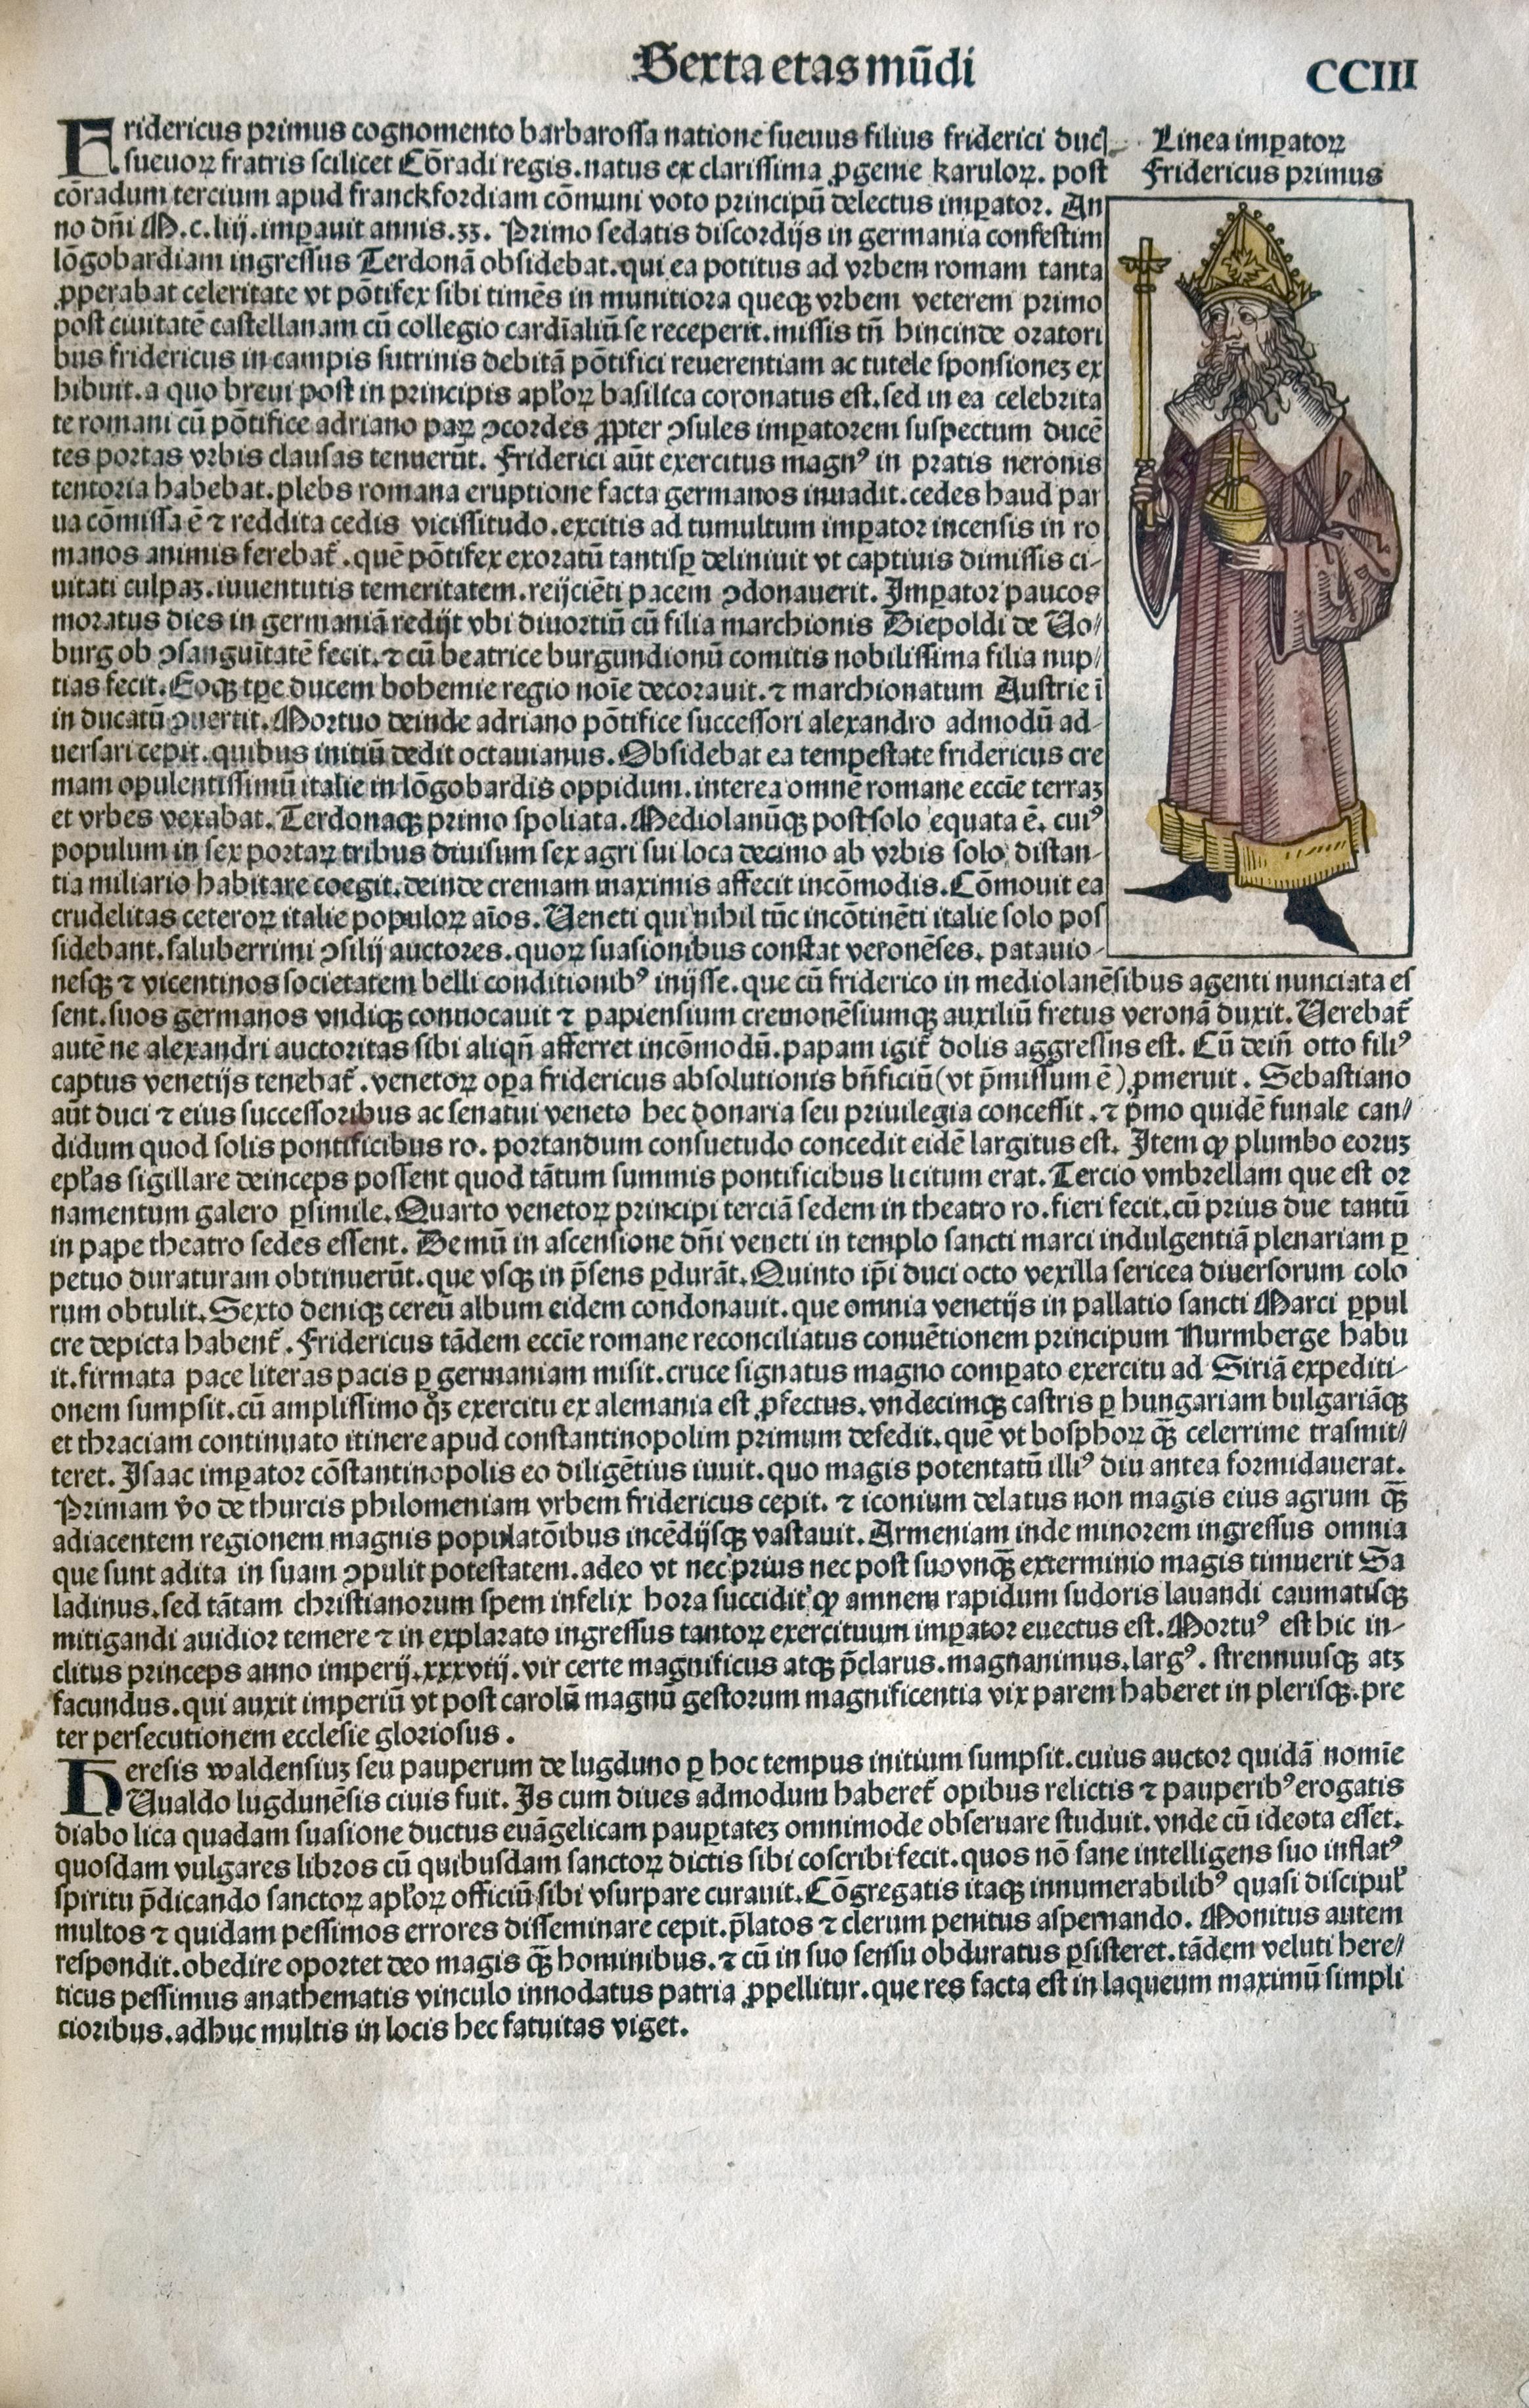 Sexta etas mūdi
CCIII
Fridericus primus cognomento barbarossa natione sueuus filius friderici ducꝭ
sueuoꝝ fratris scilicet Cōradi regis.natus ex clarissima ꝓgenie karuloꝝ. post
cōradum tercium apud franckfordiam cōmuni voto principū delectus imꝑator. An
no dñi M.c.liij.imꝑauit annis.33. Primo sedatis discordijs in germania confestim
lōgobardiam ingressus Terdonā obsidebat.qui ea potitus ad vrbem romam tanta
ꝓperabat celeritate vt pōtifex sibi timēs in munitiora queqꝫ vrbem veterem primo
post ciuitatē castellanam cū collegio cardīaliū se receperit.missis tñ hincinde oratori
bus fridericus in campis sutrinis debitā pōtifici reuerentiam ac tutele sponsioneꝫ ex
hibuit.a quo breui post in principis apl̓oꝝ basilica coronatus est.sed in ea celebrita
te romani cū pōtifice adriano paꝝ ꝯcordes ꝓpter ꝯsules imꝑatorem suspectum ducē
tes portas vrbis clausas tenuerūt. Friderici aūt exercitus magnꝰ in pratis neronis
tentoria habebat.plebs romana eruptione facta germanos inuadit.cedes haud par
ua cōmissa ē ⁊ reddita cedis vicissitudo.excitis ad tumultum imꝑator incensis in ro
manos animis ferebat̄.quē pōtifex exoratū tantisꝑ deliniuit vt captiuis dimissis ci-
uitati culpaꝫ.iuuentutis temeritatem.reijciēti pacem ꝯdonauerit. Imꝑator paucos
moratus dies in germaniā redijt vbi diuortiū cū filia marchionis Diepoldi de Vo/
burg ob ꝯsanguītatē fecit.⁊ cū beatrice burgundionū comitis nobilissima filia nup/
tias fecit. Eoqꝫ tꝑe ducem bohemie regio noīe decorauit.⁊ marchionatum Austrie ī
in ducatū ꝯuertit. Mortuo deinde adriano pōtifice successori alexandro admodū ad-
uersari cepit.quibus initiū dedit octauianus. Obsidebat ea tempestate fridericus cre
mam opulentissimū italie in lōgobardis oppidum.interea omnē romane eccīe terraꝫ
et vrbes vexabat. Terdonaqꝫ primo spoliata. Mediolanūqꝫ post solo equata ē. cuiꝰ
populum in sex portaꝝ tribus diuisum sex agri sui loca decimo ab vrbis solo distan-
tia miliario habitare coegit.deinde cremam maximis affecit incōmodis. Cōmouit ea
crudelitas ceteroꝝ italie populoꝝ aīos. Veneti qui nihil tūc incōtinēti italie solo pos
sidebant.saluberrimi ꝯsilij auctores.quoꝝ suasionibus constat veronēses. patauio-
nesqꝫ ⁊ vicentinos societatem belli conditionibꝰ inijsse.que cū friderico in mediolanēsibus agenti nunciata es
sent.suos germanos vndiqꝫ conuocauit ⁊ papiensium cremonēsiumqꝫ auxiliū fretus veronā duxit. Verebat̄
autē ne alexandri auctoritas sibi aliqñ afferret incōmodū.papam igit̄ dolis aggressus est. Cū deiñ otto filiꝰ
captus venetijs tenebat̄.venetoꝝ oꝑa fridericus absolutionis bñficiū(vt p̄missum ē)ꝓmeruit. Sebastiano
aūt duci ⁊ eius successoribus ac senatui veneto hec donaria seu priuilegia concessit.⁊ pͥmo quidē funale can/
didum quod solis pontificibus ro. portandum consuetudo concedit eidē largitus est. Item ꝙ plumbo eoruꝫ
epl̓as sigillare deinceps possent quod tātum summis pontificibus licitum erat. Tercio vmbrellam que est or
namentum galero ꝑsimile. Quarto venetoꝝ principi terciā sedem in theatro ro.fieri fecit.cū prius due tantū
in pape theatro sedes essent. Demū in ascensione dñi veneti in templo sancti marci indulgentiā plenariam ꝑ
petuo duraturam obtinuerūt.que vsqꝫ in p̄sens ꝑdurāt. Quinto ip̄i duci octo vexilla sericea diuersorum colo
rum obtulit. Sexto deniqꝫ cereū album eidem condonauit.que omnia venetijs in pallatio sancti Marci ꝑpul
cre depicta habent̄. Fridericus tādem eccīe romane reconciliatus conuētionem principum Nurmberge habu
it.firmata pace literas pacis ꝑ germaniam misit.cruce signatus magno comꝑato exercitu ad Siriā expediti-
onem sumpsit.cū amplissimo qͦꝫ exercitu ex alemania est ꝓfectus.vndecimqꝫ castris ꝑ hungariam bulgariāqꝫ
et thraciam continuato itinere apud constantinopolim primum desedit.quē vt bosphoꝝ qꝫ̄ celerrime trasmit/
teret. Isaac imꝑator cōstantinopolis eo diligētius iuuit.quo magis potentatū illiꝰ diu antea formidauerat.
Primam v̄o de thurcis philomeniam vrbem fridericus cepit. ⁊ iconium delatus non magis eius agrum qꝫ̄
adiacentem regionem magnis populatōibus incēdijsqꝫ vastauit. Armeniam inde minorem ingressus omnia
que sunt adita in suam ꝯpulit potestatem.adeo vt nec prius nec post suo vnqꝫ̄ exterminio magis timuerit Sa
ladinus.sed tātam christianorum spem infelix hora succidit ꝙ amnem rapidum sudoris lauandi caumatisqꝫ
mitigandi auidior temere ⁊ in explarato ingressus tantoꝝ exercituum imꝑator euectus est. Mortuꝰ est hic in-
clitus princeps anno imperij.xxxvij.vir certe magnificus atqꝫ p̄clarus.magnanimus.largꝰ. strennuusqꝫ atꝫ
facundus.qui auxit imperiū vt post carolū magnū gestorum magnificentia vix parem haberet in plerisqꝫ.pre
ter persecutionem ecclesie gloriosus.
Heresis waldensiuꝫ seu pauperum de lugduno ꝑ hoc tempus initium sumpsit.cuius auctor quidā nomīe
Vualdo lugdunēsis ciuis fuit. Is cum diues admodum haberet̄ opibus relictis ⁊ pauperibꝰ erogatis
diabo lica quadam suasione ductus euāgelicam pauꝑtateꝫ omnimode obseruare studuit.vnde cū ideota esset.
quosdam vulgares libros cū quibusdam sanctoꝝ dictis sibi coscribi fecit.quos nō sane intelligens suo inflatꝰ
spiritu p̄dicando sanctoꝝ apl̓oꝝ officiū sibi vsurpare curauit. Cōgregatis itaqꝫ innumerabilibꝰ quasi discipul̓
multos ⁊ quidam pessimos errores disseminare cepit.p̄latos ⁊ clerum penitus aspernando. Monitus autem
respondit.obedire oportet deo magis qꝫ̄ hominibus.⁊ cū in suo sensu obduratus ꝑsisteret.tādem veluti here/
ticus pessimus anathematis vinculo innodatus patria ꝓpellitur.que res facta est in laqueum maximū simpli
cioribus.adhuc multis in locis hec fatuitas viget.
Linea imꝑatoꝝ
Fridericus primus